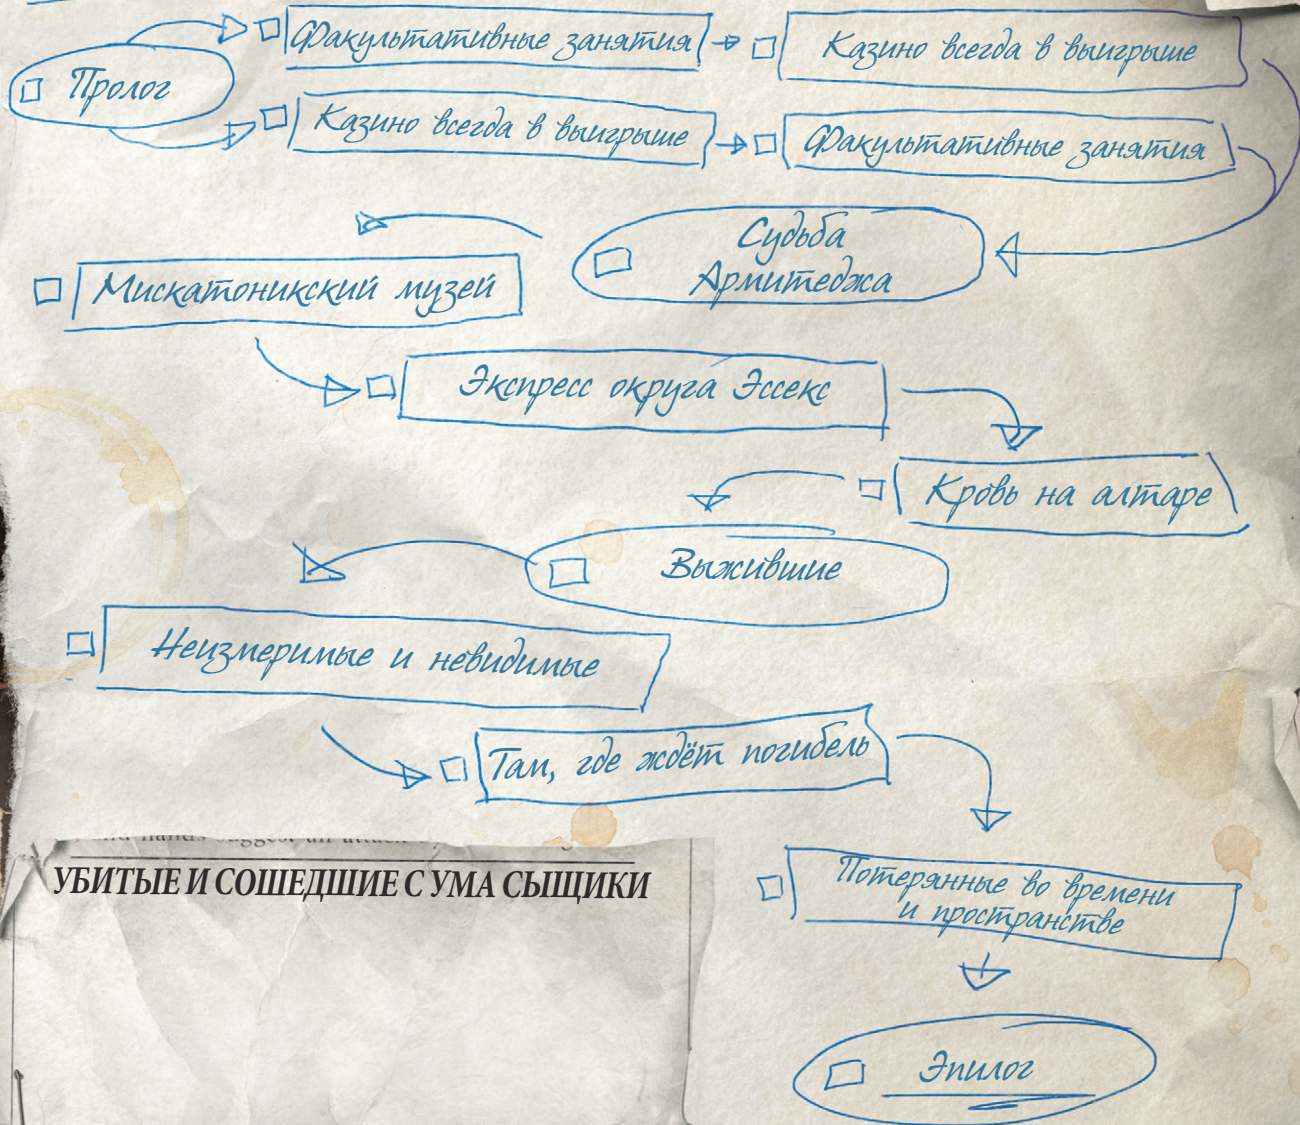 Пролог
Факультативные занятия
Казино всегда в выигрыше
Казино всегда в выигрыше
Факультативные занятия
Судьба
Армитеджа
Мискатоникский музей
Экспресс округа Эссекс
Кровь на алтаре
Выжившие
Неизмеримые и невидимые
Там, где ждёт погибель
УБИТЫЕ И СОШЕДШИЕ С УМА СЫЩИКИ
Потерянные во времени
и пространстве
Эпилог